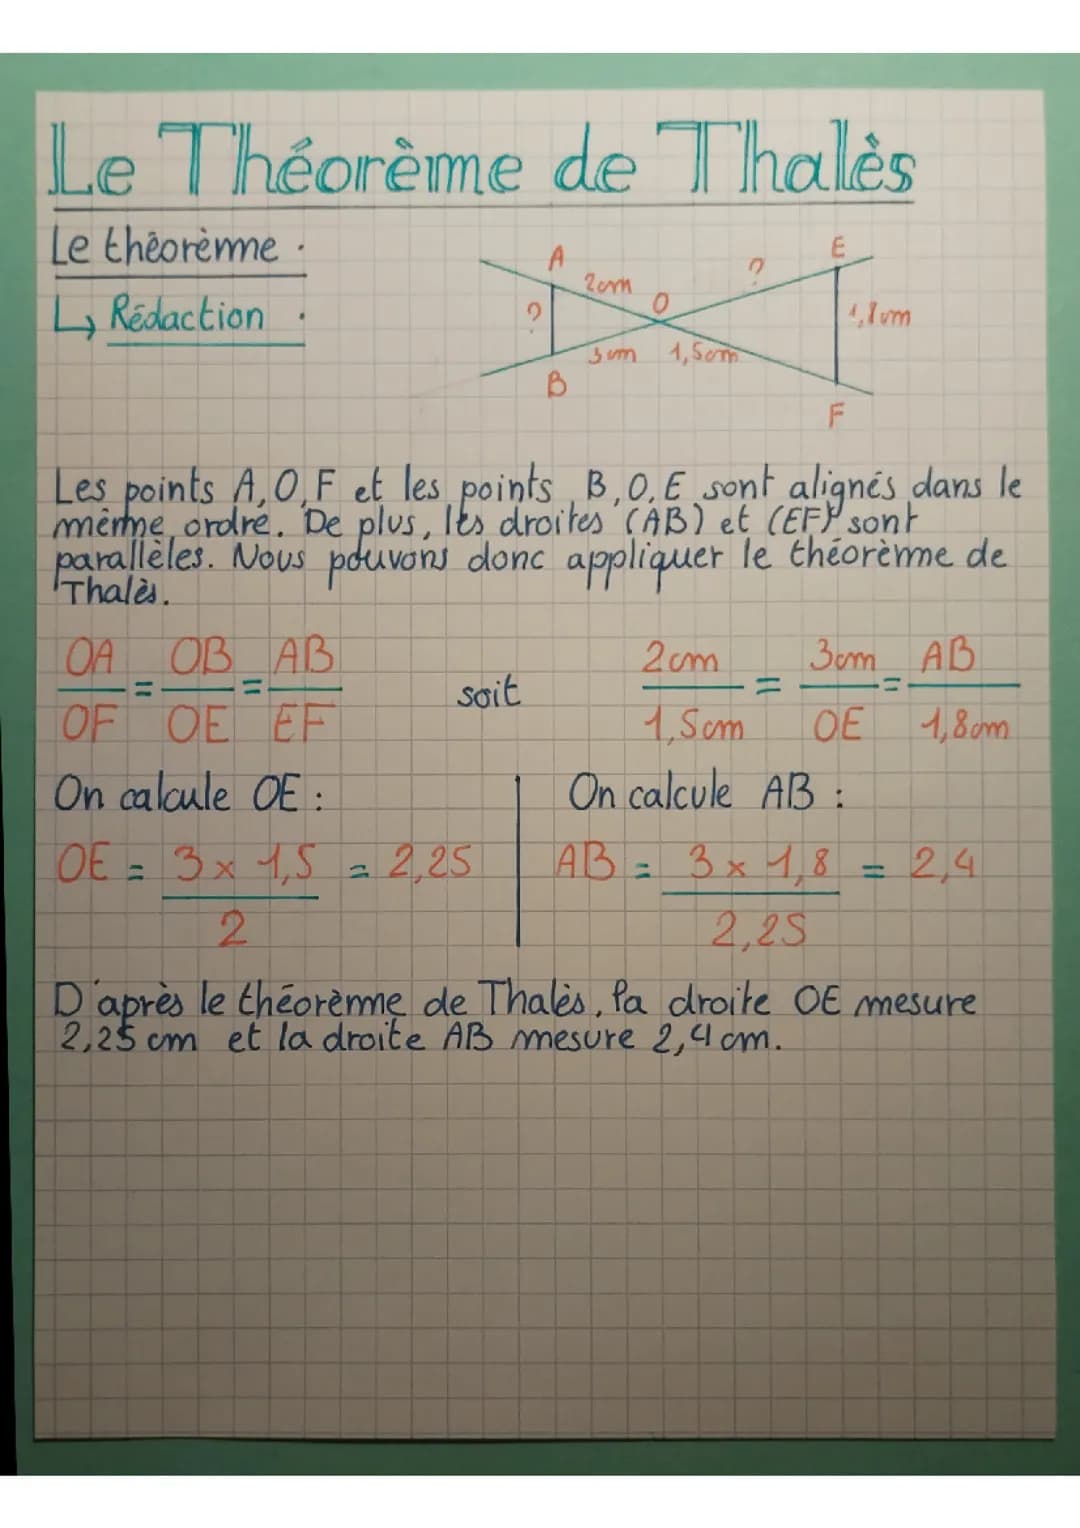 Le Théorème de Thalès
Le théorème :
↳ Rédaction :
A
E
2cm
?
O
?
1,8cm
3cm
1,5cm
B
F
Les points A, O, F et les points B, O, E sont alignés dans le
même ordre. De plus, les droites (AB) et (EF) sont
parallèles. Nous pouvons donc appliquer le théorème de
Thalès.
OA/OF = OB/OE = AB/EF soit 2cm/1,5cm = 3cm/OE = AB/1,8cm
On calcule OE :
OE = 3 x 1,5 / 2 = 2,25
On calcule AB :
AB = 3 x 1,8 / 2,25 = 2,4
D'après le théorème de Thalès, la droite OE mesure
2,25 cm et la droite AB mesure 2,4 cm.